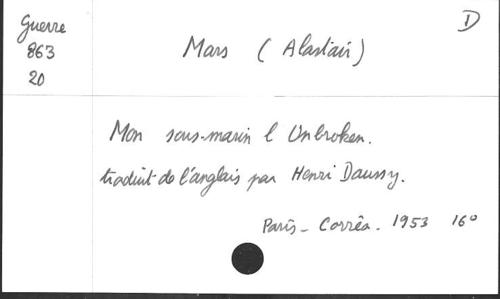 Guerre
863
20
D
Mars (Alastair)
Mon sous-marin l'Unbroken.
traduit de l'anglais par Henri Daussy.
Paris - Corrêa. 1953 16°